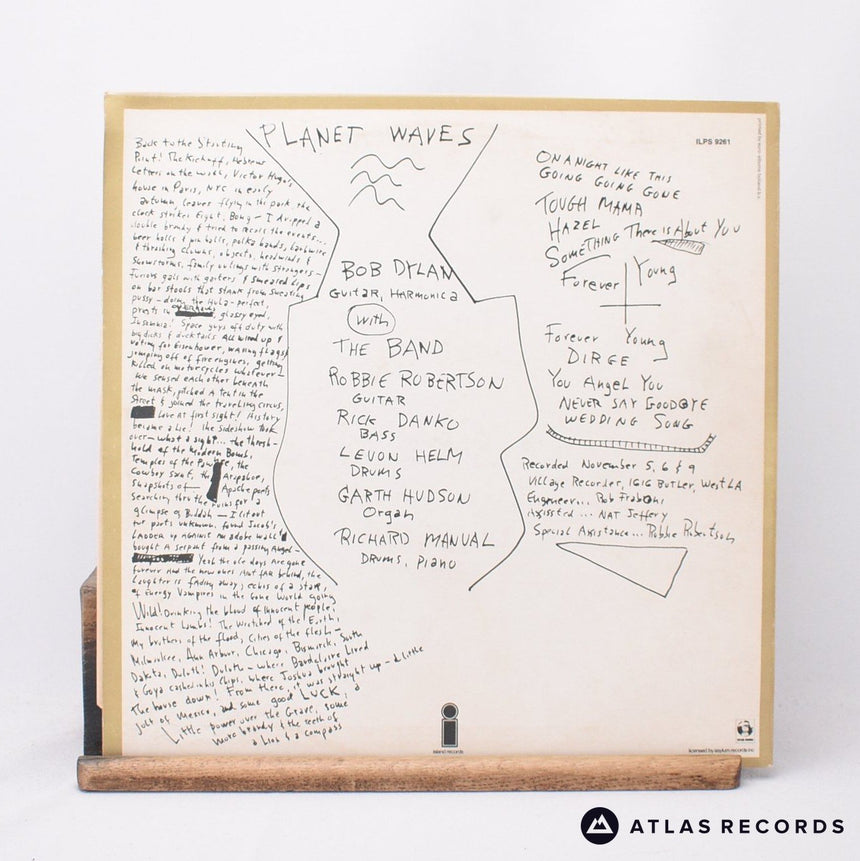 Back to the Starting
Point! The Kickoff, Hebrew
Letters on the wall, Victor Hugo's
house in Paris, NYC in early
autumn, leaves flying in the park, the
clock strikes Eight, Bong — I dropped a
double brandy & tried to recall the events...
beer halls & pin balls, polka bands, barbwire
& thrashing clowns, objects, headwinds &
Snowstorms, family outings with strangers —
Furious gals with garters & smeared Lips
on bar stools that stank from sweating
pussy — doing the Hula — perfect,
priests in overhauls, glassy eyed,
Insomnia! Space guys off duty with
big dicks & ducktails All wired up &
voting for Eisenhower, waving flags &
jumping off of fire engines, getting
killed on motorcycles whatever —
We sensed each other beneath
the mask, pitched a tent in the
Street & joined the traveling circus,
Love at first sight! History
became a Lie! the sideshow took
over — what a sight... the thresh-
hold of the Modern Bomb,
Temples of the Pawnee, the
Cowboy saint, the Arapahoe,
Snapshots of — Apache poets
searching thru the ruins for a
glimpse of Buddah — I lit out
for parts unknown, found Jacob's
LADDER up AGAINST AN adobe wall &
bought A serpent from a passing Angel —
Yeah the ole days are gone
forever And the new ones Aint fAR behind, the
Laughter is fading away, echos of a staR,
of Energy Vampires in the Gone World going
Wild! Drinking the blood of innocent people,
Innocent Lambs! The Wretched of the Earth,
My brothers of the flood, Cities of the flesh —
Milwaukee, Ann Arbor, Chicago, Bismarck, South
Dakota, Duluth! Duluth — where Baudelaire Lived
& Goya cashed in his Chips, where Joshua brought
The house down! From there, it was straight up — a Little
jolt of Mexico, and some good LUCK, a
Little power over the Grave, some
More brandy & the teeth of
a Lion & a compass
PLANET WAVES
BOB DYLAN
GUITAR, HARMONICA
with
THE BAND
ROBBIE ROBERTSON
GUITAR
RICK DANKO
BASS
LEVON HELM
DRUMS
GARTH HUDSON
Organ
RICHARD MANUAL
DRUMS, PIANO
ILPS 9261
ON A NIGHT LIKE THIS
GOING GOING GONE
TOUGH MAMA
HAZEL
SOMETHING There is About You
Forever Young
Forever Young
DIRGE
You Angel You
NEVER SAY GOODBYE
WEDDING SONG
Recorded November 5, 6 & 9
Village Recorder, 1616 Butler, West LA
Engeneer... Rob Fraboni
Assissted... NAT Jeffery
Special Assistance... Robbie Robertson
island records
licensed by asylum records inc
ATLAS RECORDS